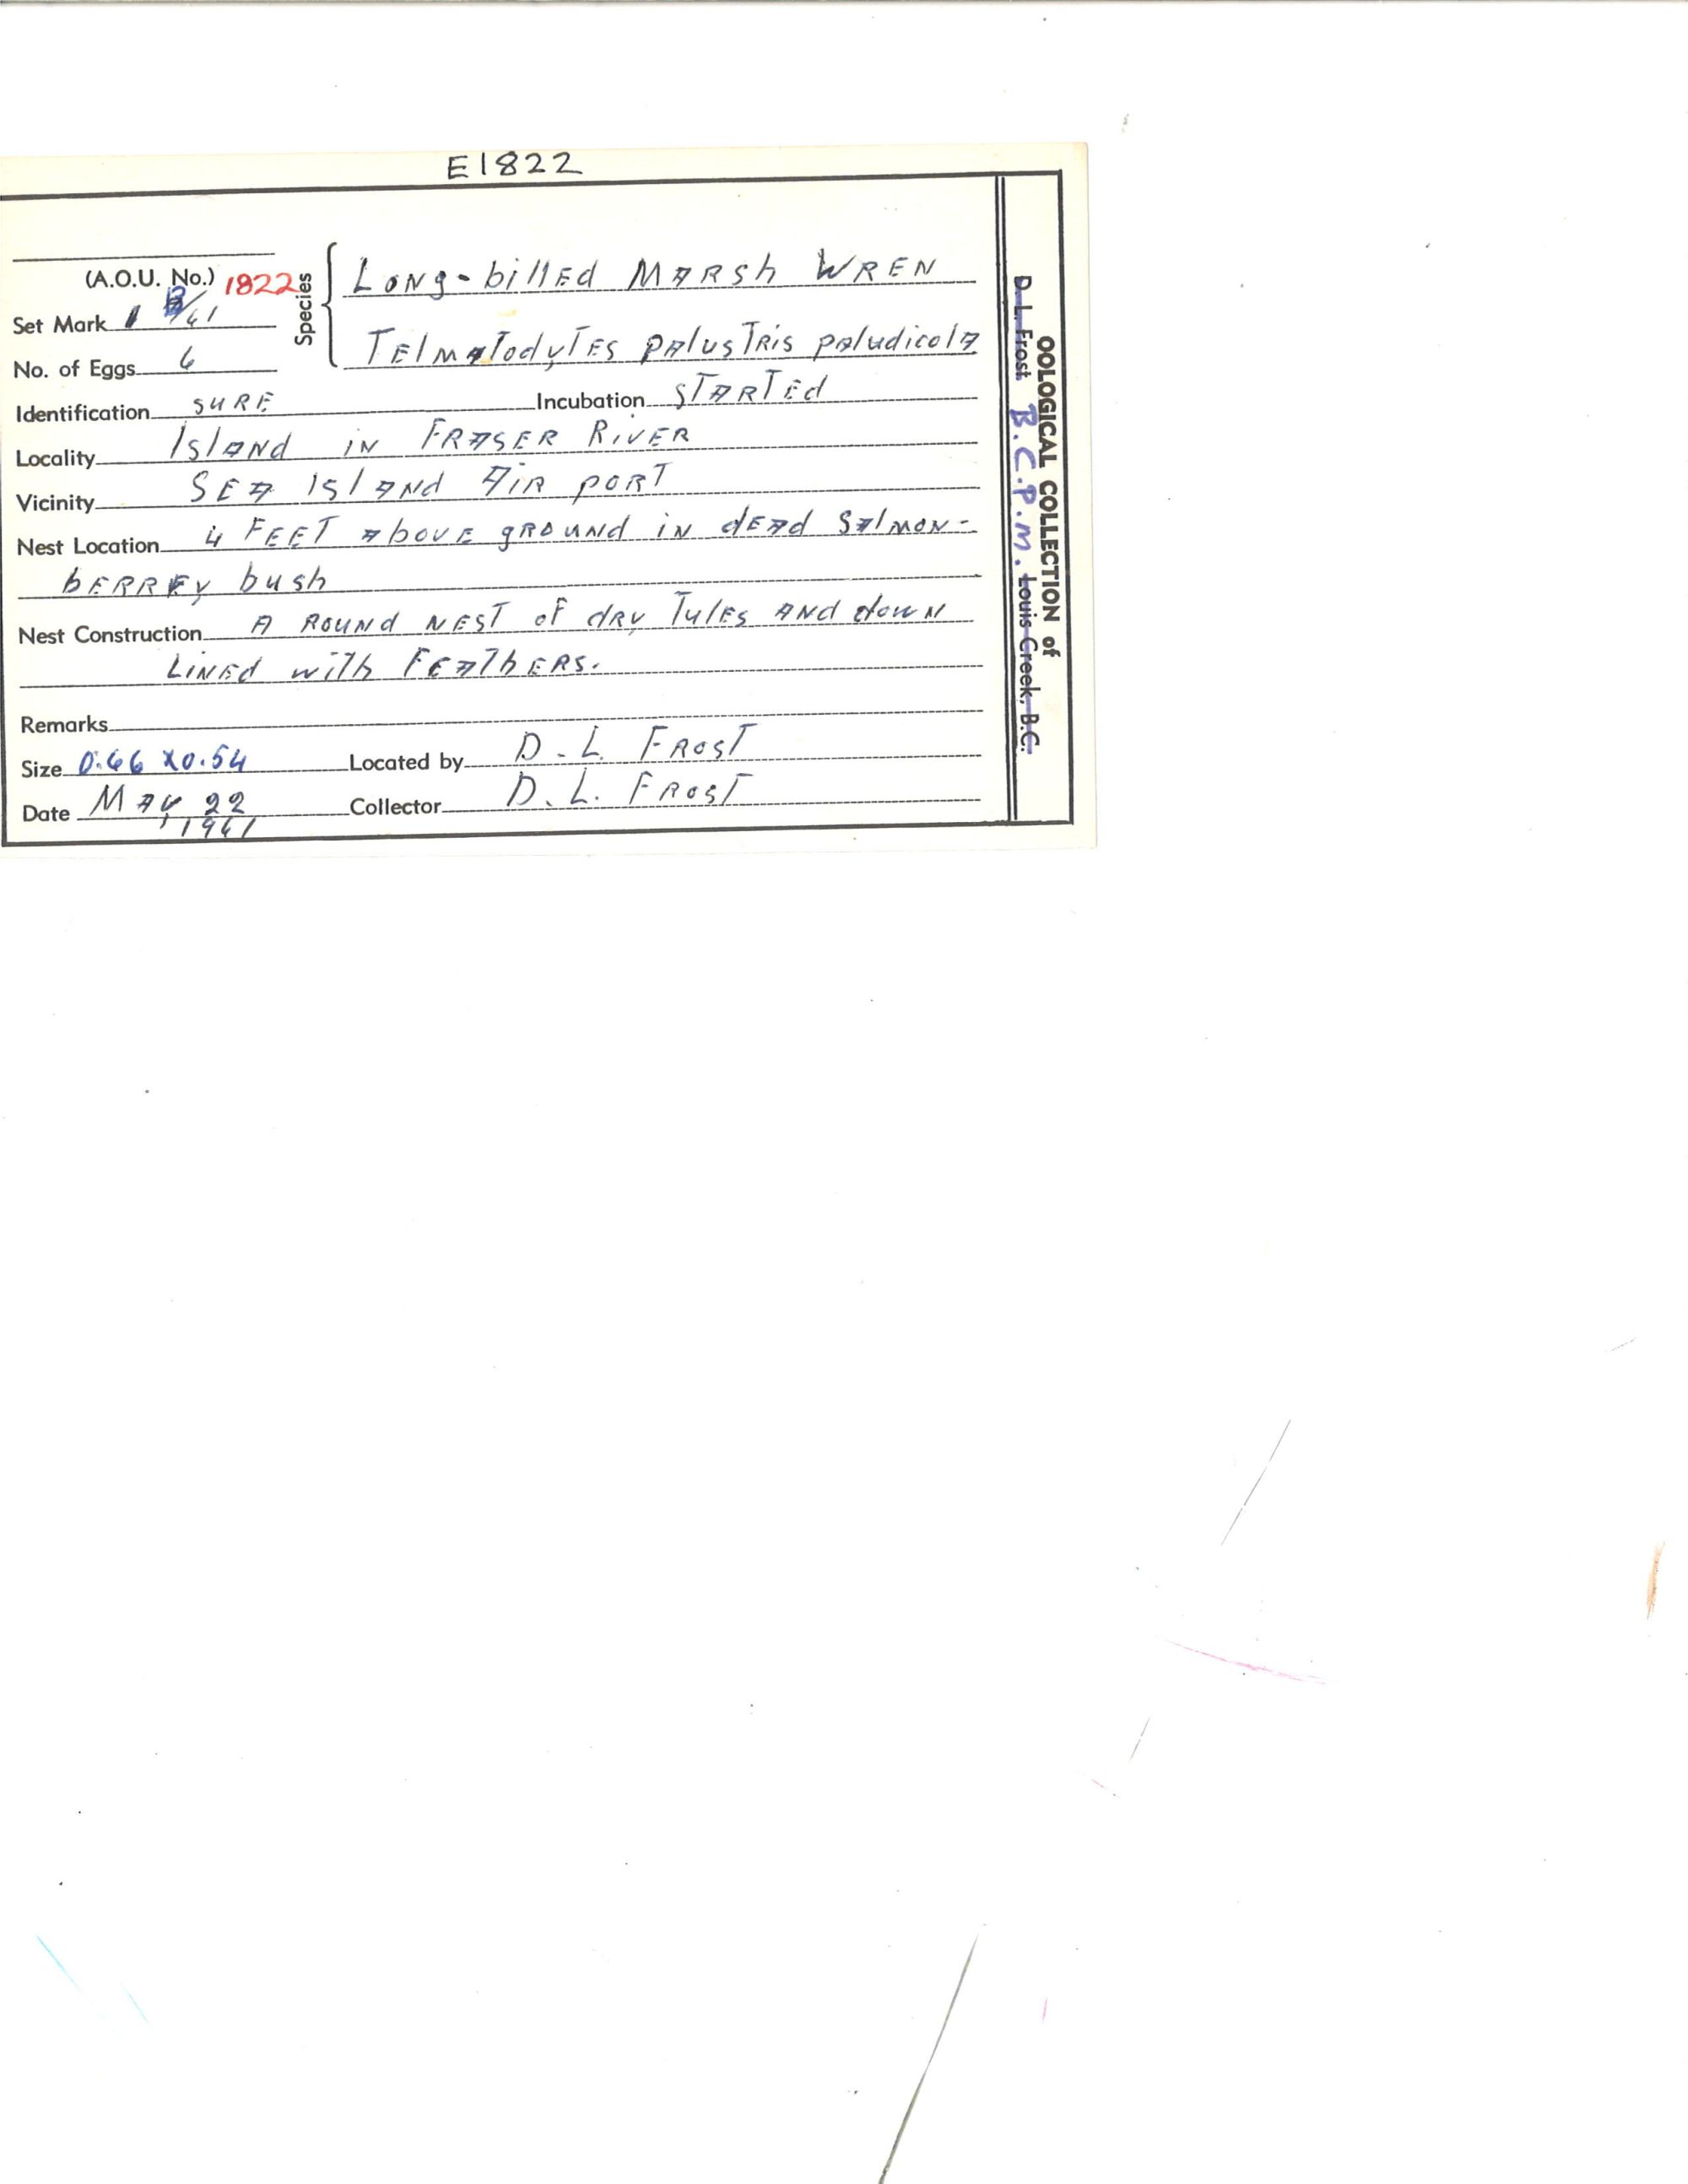 E1822
(A.O.U. No.) 1822
Species
Long-billed Marsh Wren
Telmatodytes palustris paludicola
Set Mark /61
No. of Eggs 6
Identification sure Incubation started
Locality Island in Fraser River
Vicinity Sea Island Air port
Nest Location 4 feet above ground in dead salmon-
berrey bush
Nest Construction A round nest of dry Tules and down
Lined with Feathers.
Remarks
Size 0.66 x0.54 Located by D. L. Frost
Date May 22 Collector D. L. Frost
, 1961
OOLOGICAL COLLECTION of
D. L. Frost B.C.P.M. Louis Creek, B.C.